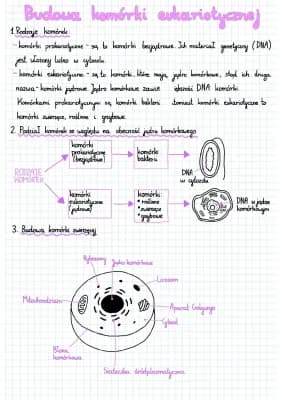 Budowa komórki eukariotycznej
1. Rodzaje komórek
- komórki prokariotyczne - są to komórki bezjądrowe. Ich materiał genetyczny (DNA)
jest ułożony luźno w cytozolu.
- komórki eukariotyczne - są to komórki, które mają jądro komórkowe, stąd ich druga
nazwa - komórki jądrowe. Jądro komórkowe zawiera większość DNA komórki.
Komórkami prokariotycznymi są komórki bakterii natomiast komórki eukariotyczne to
komórki zwierzęce, roślinne i grzybowe.
2. Podział komórek ze względu na obecność jądra komórkowego
RODZAJE KOMÓREK
komórki prokariotyczne (bezjądrowe)
komórki bakterii
DNA w cytozolu
komórki eukariotyczne (jądrowe)
komórki:
• roślinne
• zwierzęce
• grzybowe
DNA w jądrze komórkowym
3. Budowa komórki zwierzęcej
Rybosomy
Jądro komórkowe
Lizosom
Mitochondrium
Aparat Golgiego
Cytozol
Błona komórkowa
Siateczka śródplazmatyczna